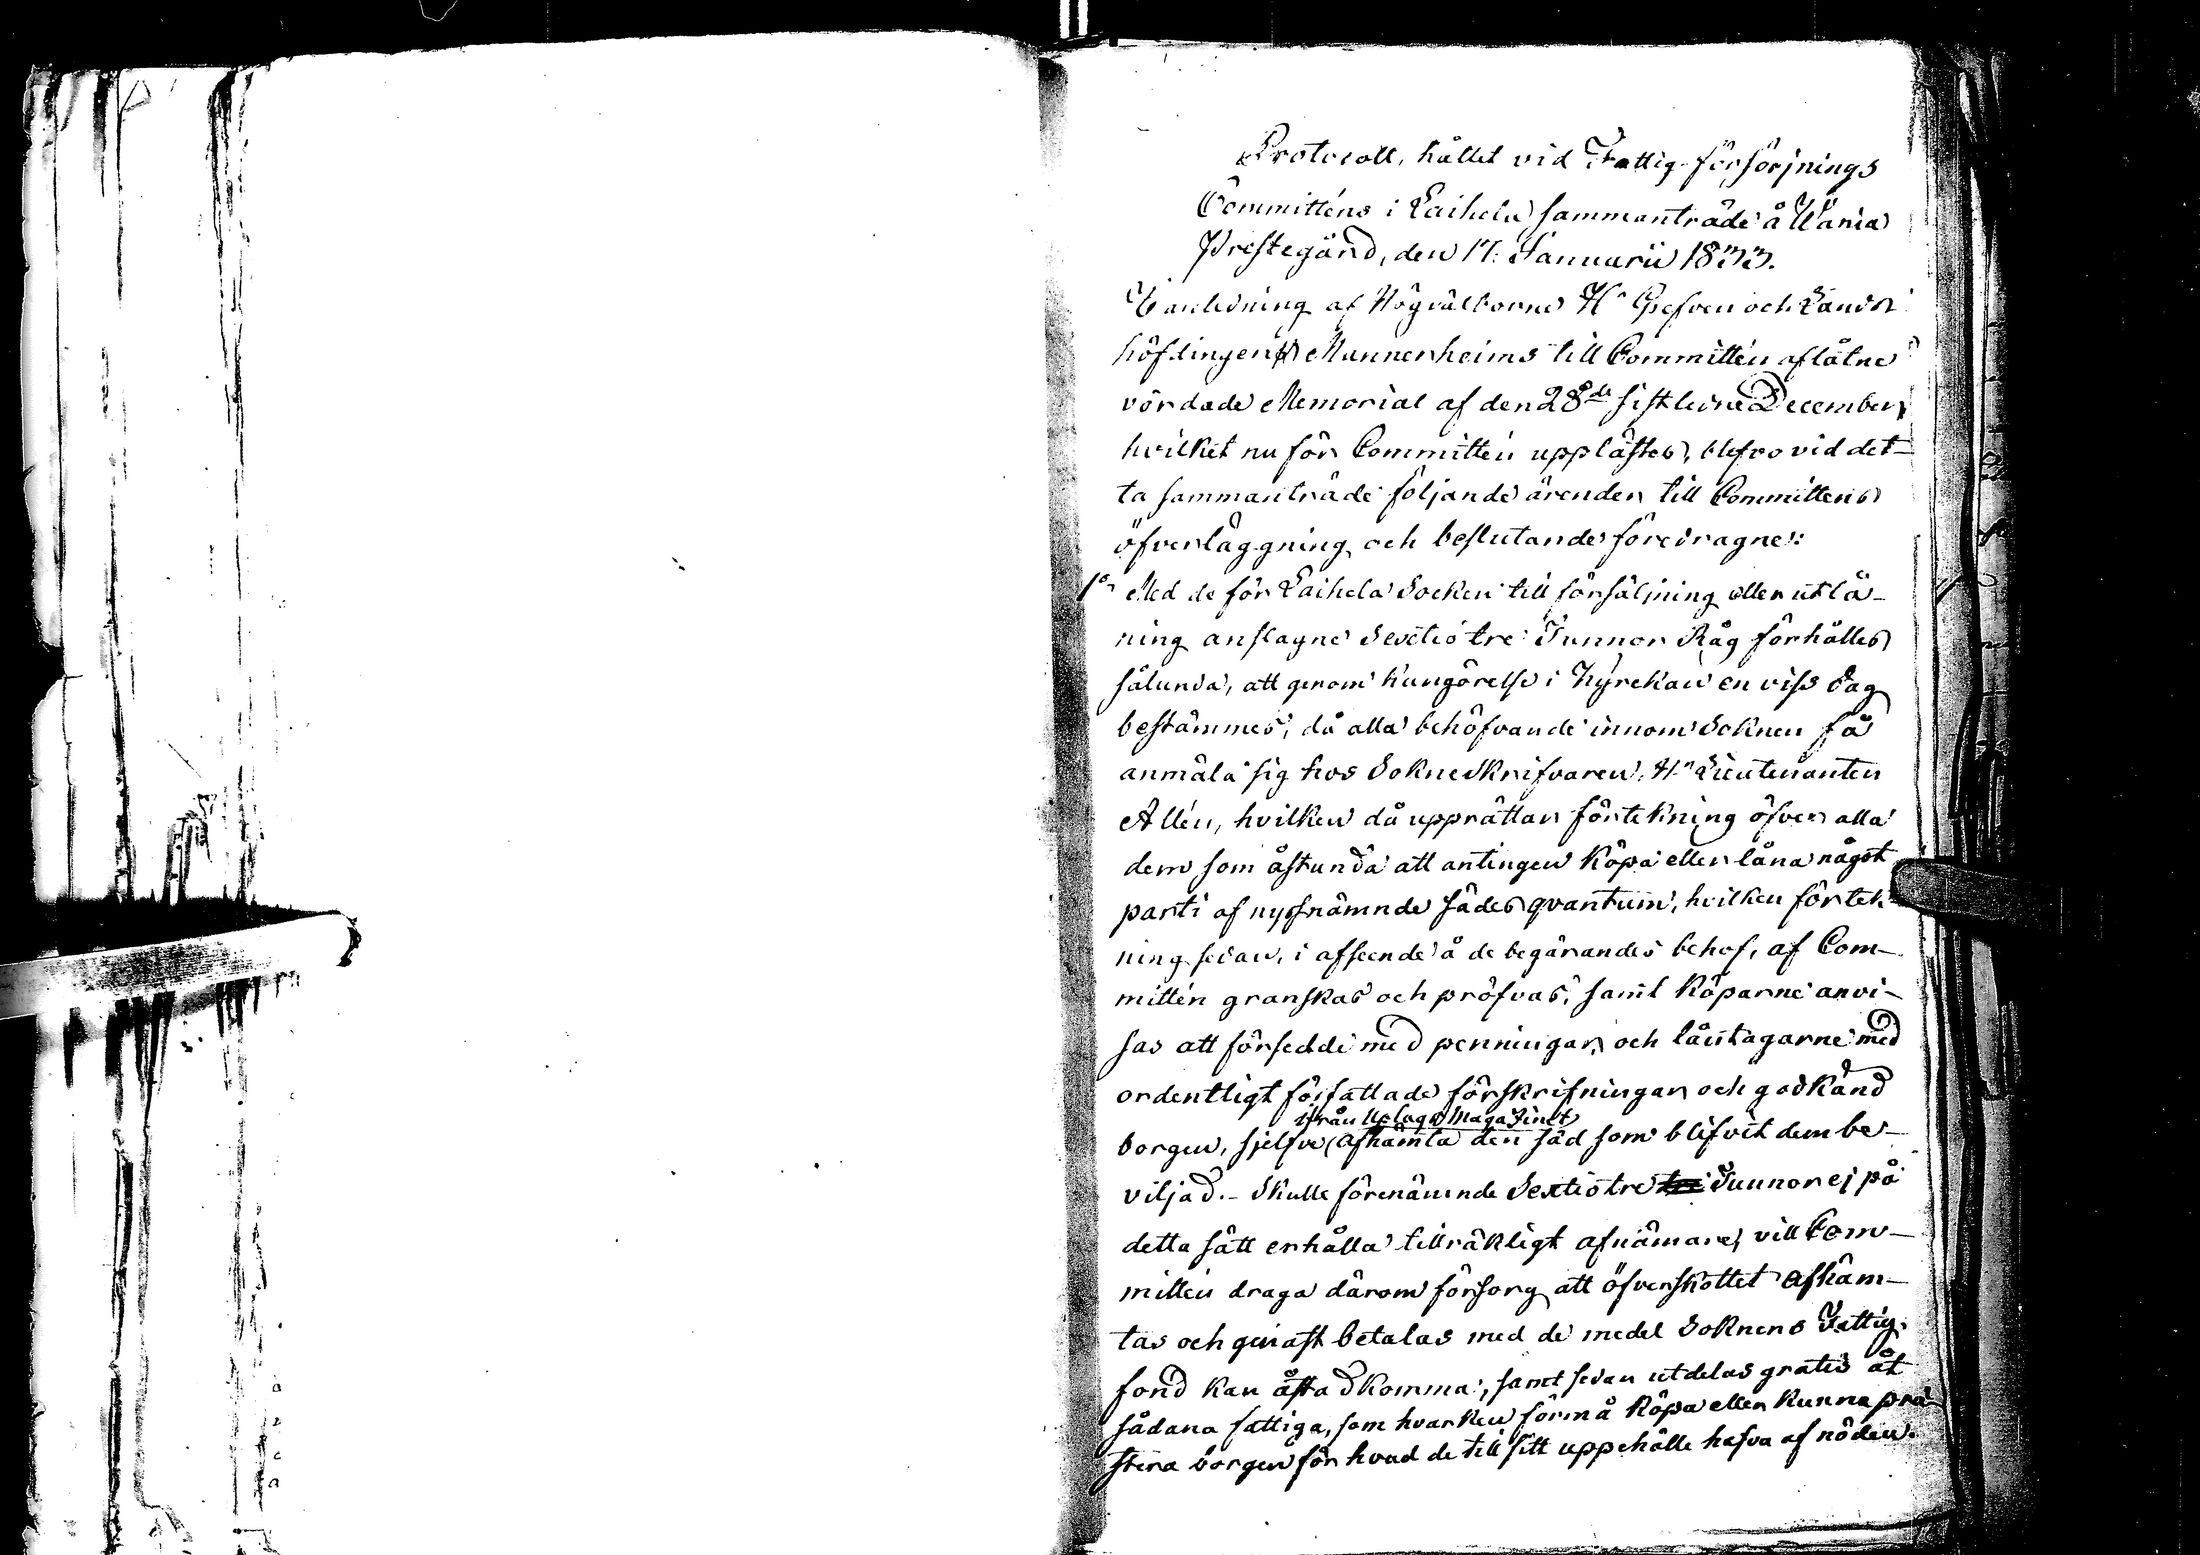 Protocoll, hållet vid Fattig-försörjnings
Committéns i Laihela sammanträde å Wänia
Prestegård, den 17. Januarii 1833.
I anledning af Högvälborne Hr Grefven och Lands
höfdingen Mannerheims till Committén aflåtne
vördade Memorial af den 28de sistledne December,
hvilket nu för Committén upplästes, blefvo vid det-
ta sammanträde följande ärender till Committens
öfverläggning och beslutande föredragne:
1o Med de för Laihela Socken till försäljning eller utlå-
ning anslagne Sextiotre Tunnor Råg förhålles
sålunda, att genom kungörelse i Kyrckan en viss dag
bestämmes, då alla behöfvande innom Soknen få
anmäla sig hos Sokneskrifvaren, Hr Lieutenanten
Allén, hvilken då upprättar förtekning öfver alla
dem som åstunda att antingen köpa eller låna något
parti af nyssnämnde sädesqvantum, hvilken förtek-
ning sedan, i afseende å de begärandes behof, af Com-
mittén granskas och pröfvas, samt köparne anvi-
sas att försedde med penningar, och låntagarne med
ordentligt författade förskrifningar och godkänd
ifrån Uplags Magasinet
borgen, sjelfve afhämta den säd som blifvit dem be-
viljad. - Skulle förenämnde Sextiotre tre Tunnor ej på
detta sätt erhålla tillräkligt afnämare, vill Com-
mittén draga därom försorg att öfverskottet afhäm-
tas och genast betalas med de medel Soknens Fattig-
fond kan åstadkomma, samt sedan utdelas gratis åt
sådana fattiga, som hvarken förmå köpa eller kunna præ-
stera borgen för hvad de till sitt uppehälle hafva af nöden.